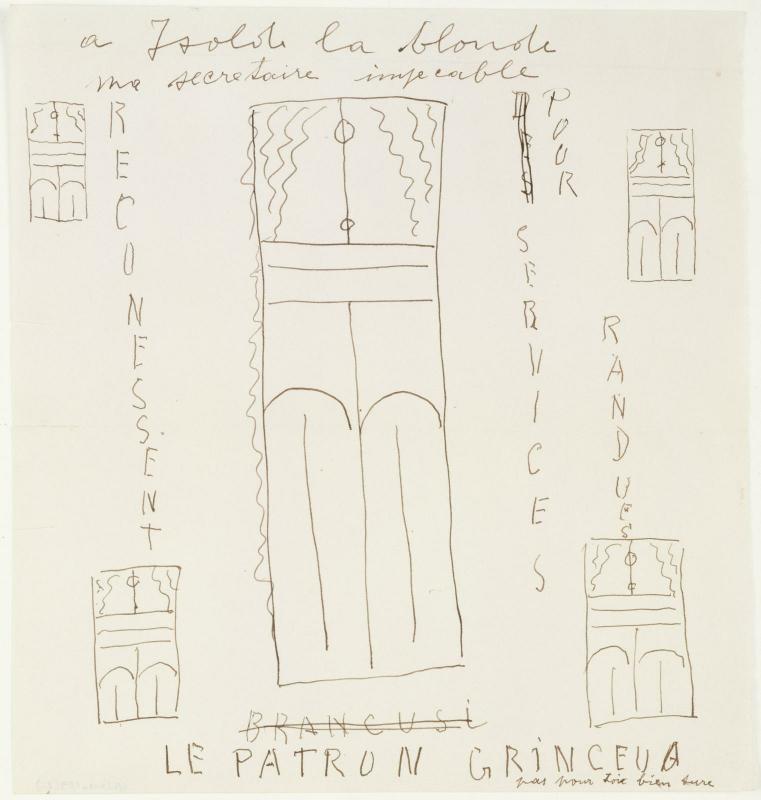 a Isolde la blonde
ma secretaire impecable
RECONESSENT
POUR
SERVICES
RANDUES
BRANCUSi
LE PATRON GRiNCEUR
pas pour toie bien sure